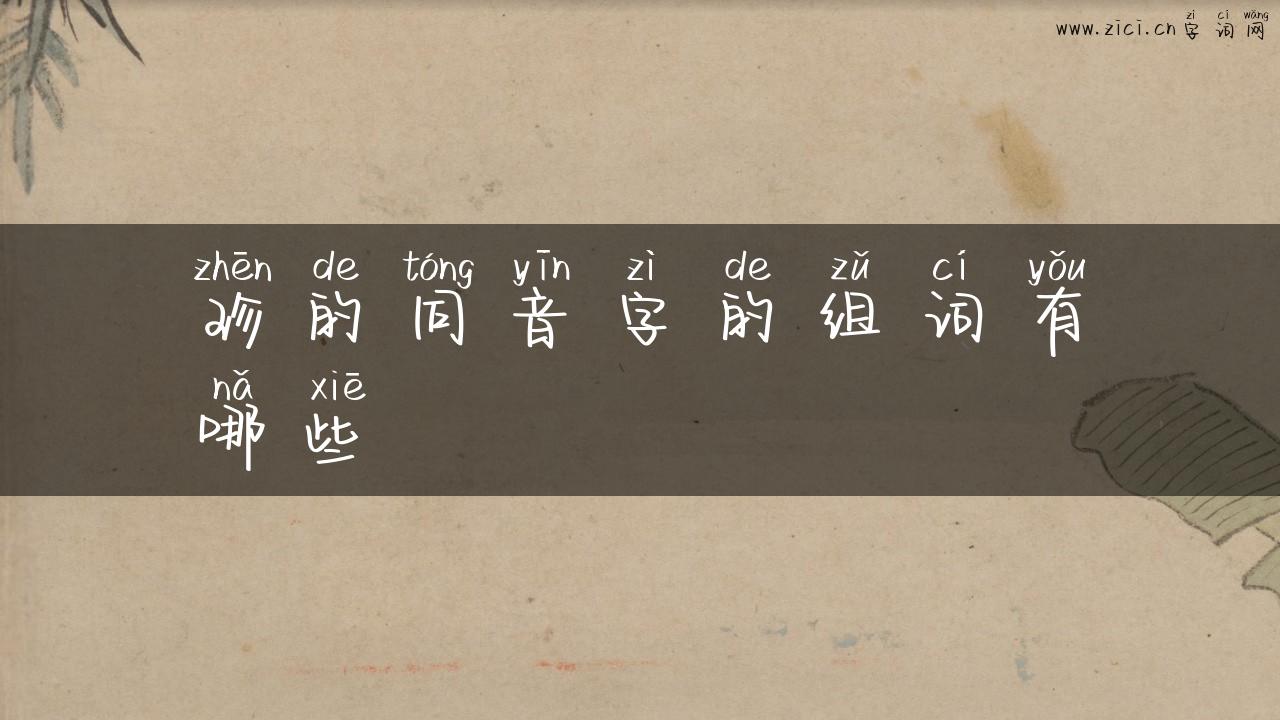 zì cí wǎng
www.zici.cn 字 词 网
zhēn de tóng yīn zì de zǔ cí yǒu
珍 的 同 音 字 的 组 词 有
nǎ xiē
哪 些